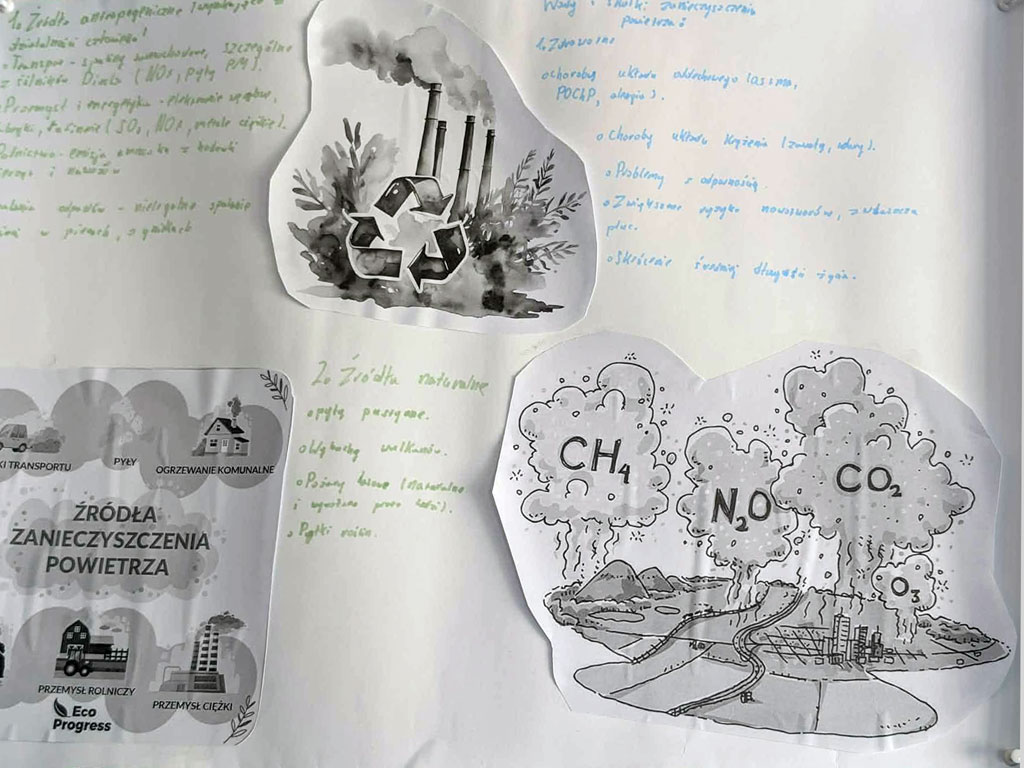 1. Źródła antropogeniczne (wynikające z
działalności człowieka)
Transport - spaliny samochodowe, szczególnie
z silników Diesla (NOx, pyły PM).
Przemysł i energetyka - elektrownie węglowe,
(SO₂, NOx, metale ciężkie).
Rolnictwo - emisja amoniaku z hodowli
i nawozów
odpadów - nielegalne spalanie
w piecach,
2. Źródła naturalne
• pyły pustynne.
• Wybuchy wulkanów.
• Pożary lasów (naturalne
i wywołane przez ludzi).
• Pyłki roślin.
skutki zanieczyszczenia
powietrza
1. Zdrowotne
• choroby układu oddechowego (astma,
POChP, alergie).
• Choroby układu krążenia (zawały, udary).
• Problemy z odpornością.
• Zwiększone ryzyko nowotworów, zwłaszcza
płuc.
• Skrócenie średniej długości życia.
KI TRANSPORTU
PYŁY
OGRZEWANIE KOMUNALNE
ŹRÓDŁA
ZANIECZYSZCZENIA
POWIETRZA
PRZEMYSŁ ROLNICZY
PRZEMYSŁ CIĘŻKI
Eco
Progress
CH₄
N₂O
CO₂
O₃